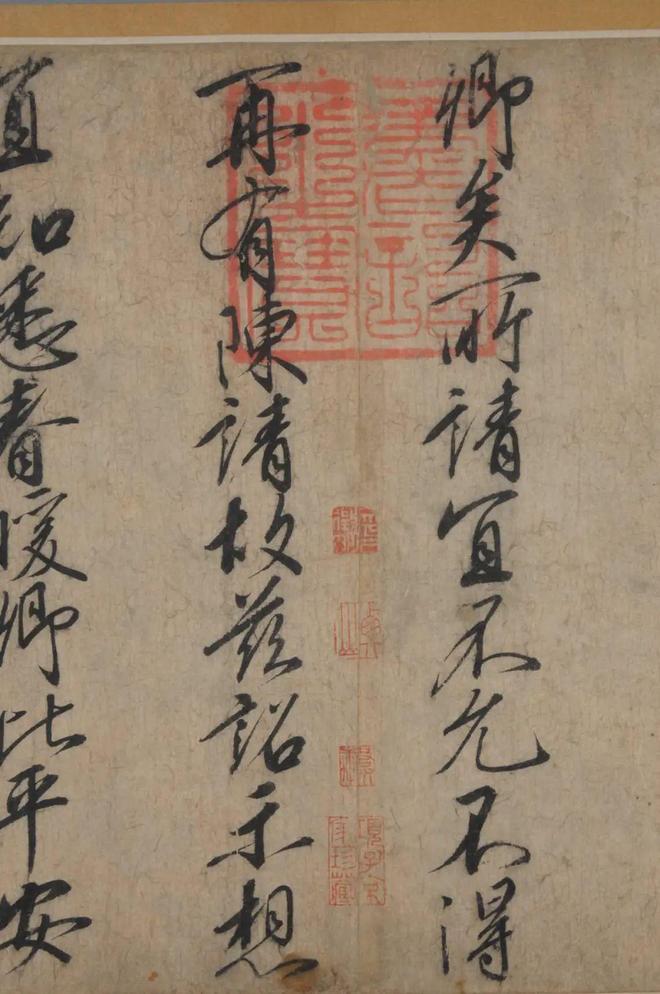 卿矣所請宜不允不得
再有陳請故茲詔示想
宜知悉春暖卿比平安